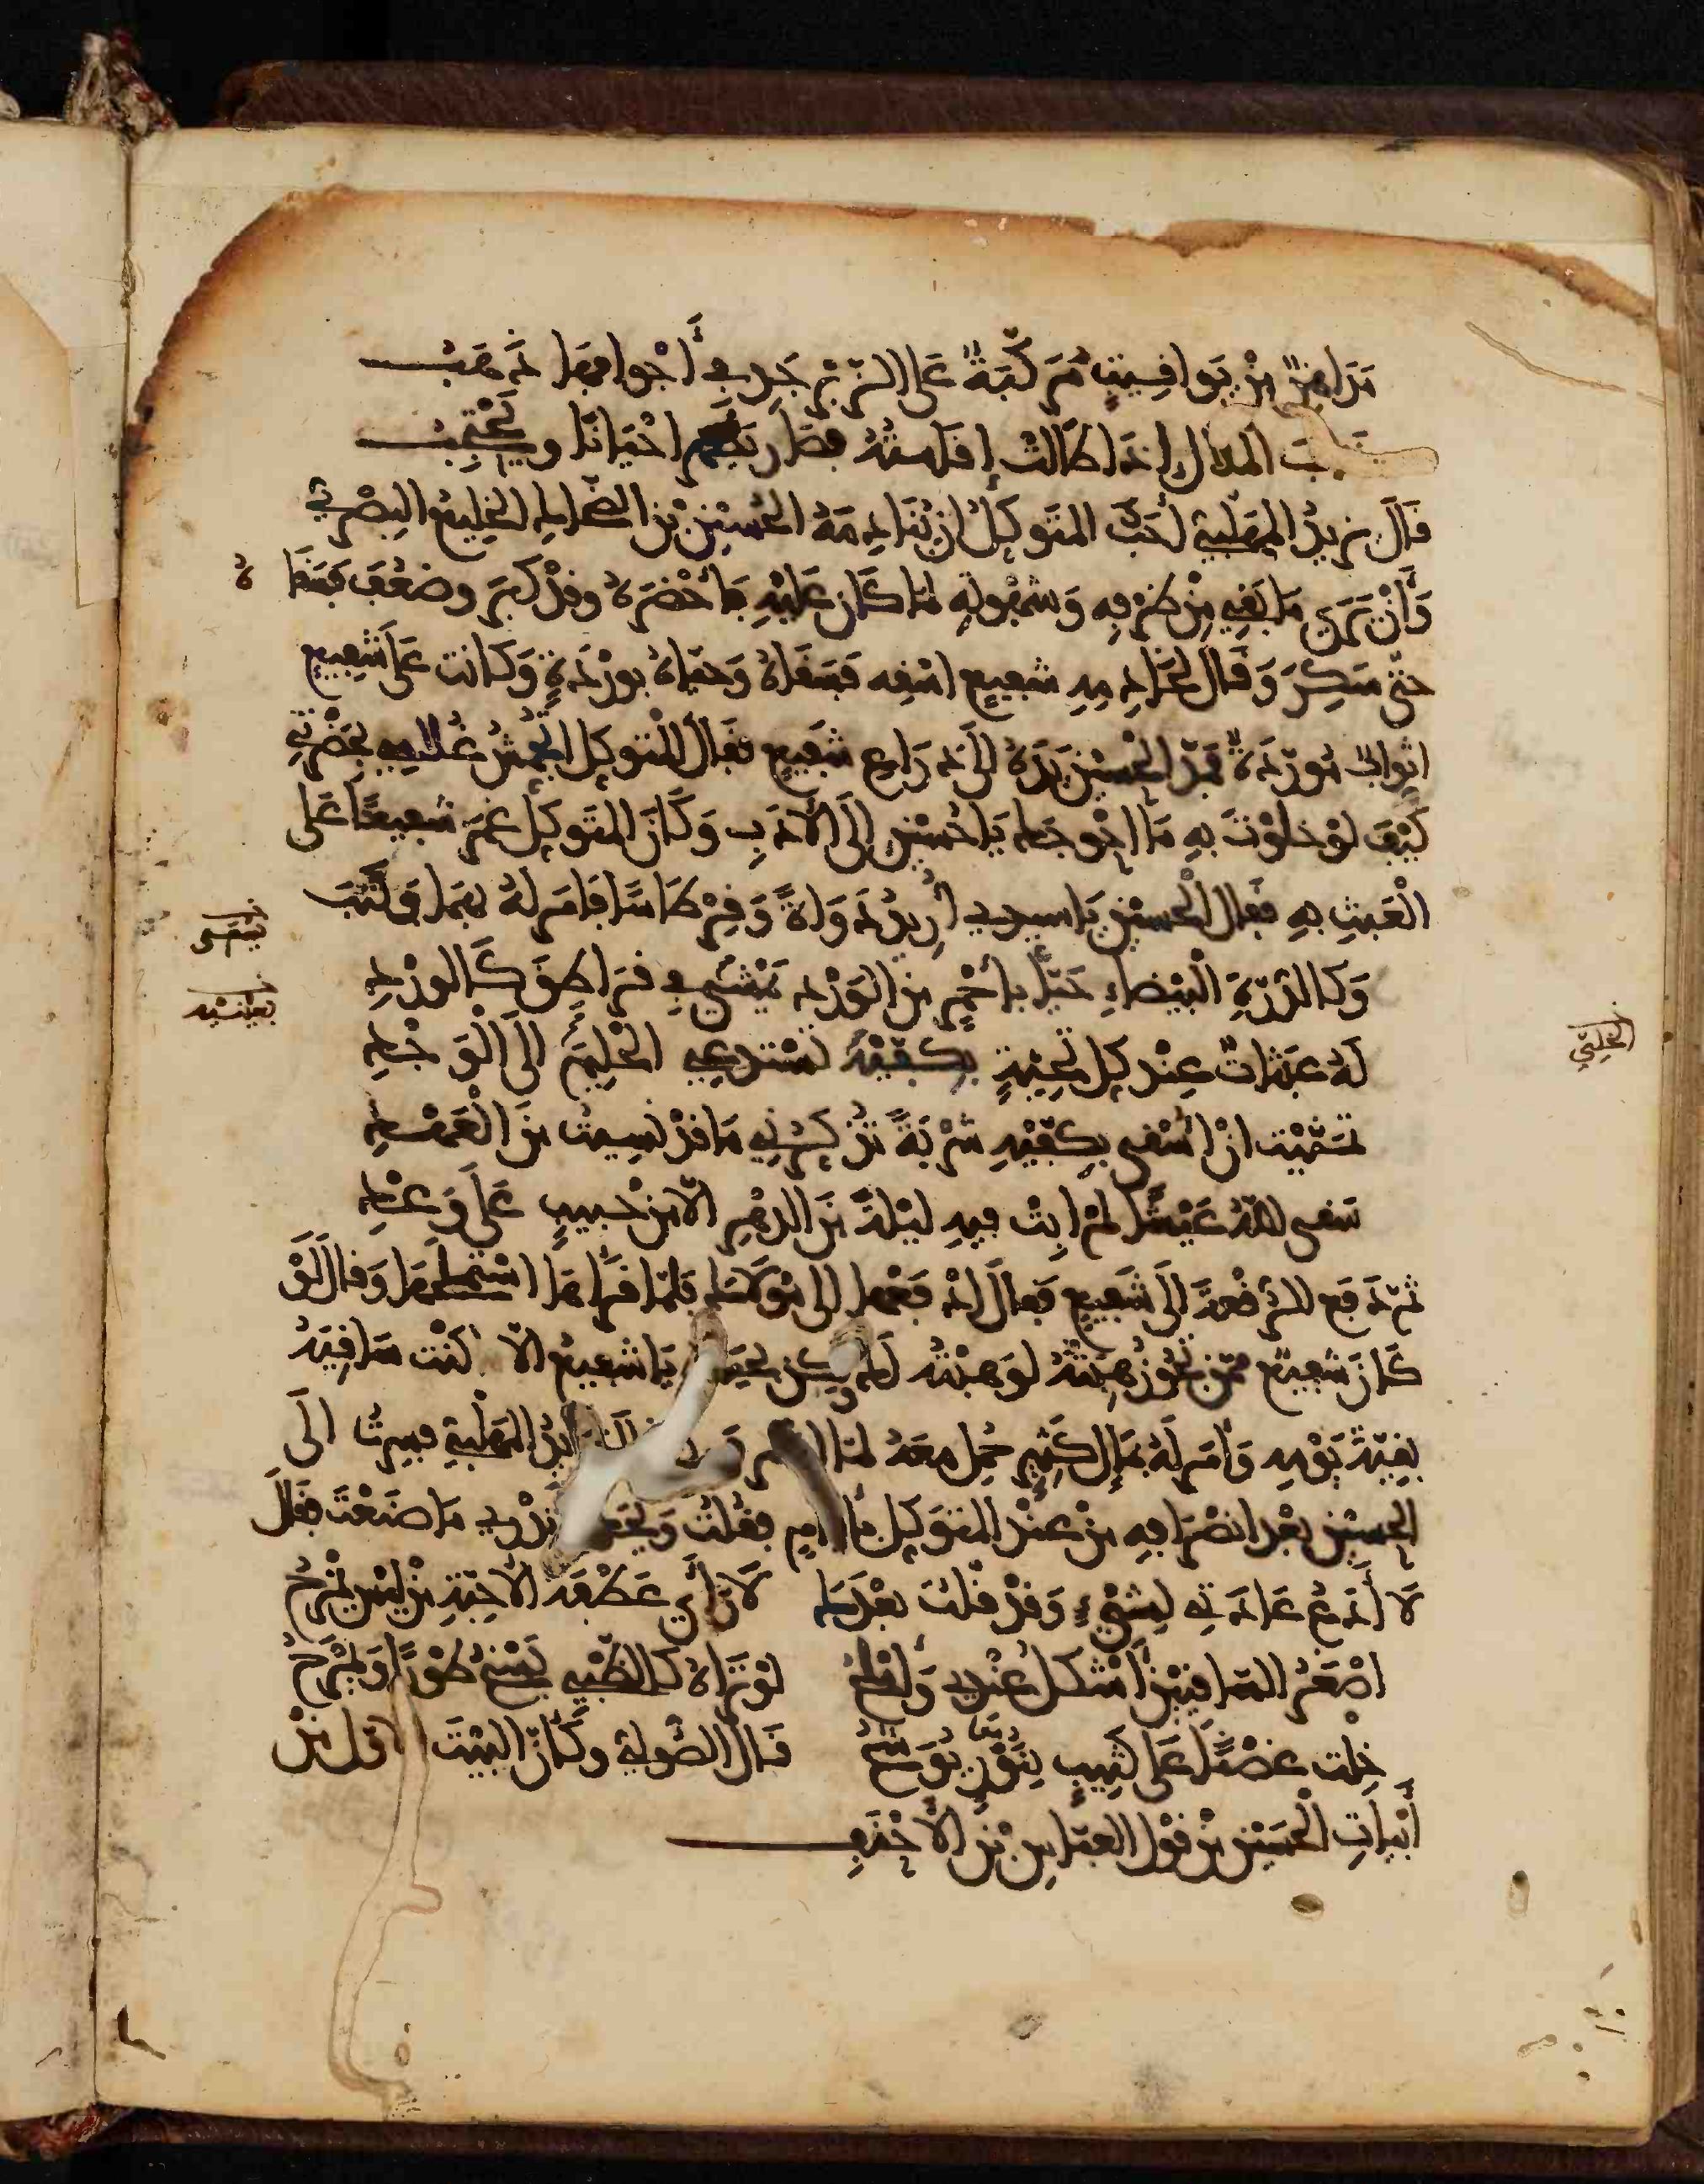 مَدَاهِنٌ مِنْ يَوَاقِيتٍ مُرَكَّبَةٌ عَلَى الزَّبَرْجَدِ فِي أَجْوَافِهَا ذَهَبُ
الملال إذا طالت إقامتُهُ فصار يظهر احْيَانًا ويحْتَجِبُ
قَالَ يزيدُ المهلّبي أحَبَّ المتَوكلُ ان يُنَادِمَهُ الحُسَيْن بْن الضّحاك الخليع البصْري
وَأنْ يَرَى مَا بَقِي مِنْ ظرْفِهِ وَشَهْوتِهِ لمَا كَان عَليْهِ فَأحْضَرَهُ وقدْ كَبرَ وضعُفَ فسَقَاهُ
حتّى سَكِرَ وَقَال لخَادِمِهِ شفيع اسْقِه فَسَقَاهُ وَحيّاهُ بوَرْدَةٍ وَكَانت عَلَى شَفِيع
اثوابٌ مُورّدَةٌ فَمَدّ الحُسَيْن يَدَهُ الَى ذرَاعِ شَفيع فقال المتوكل اتجمّش غُلامي بحَضْرتي
كَيْفَ لوْ خلوْتَ بهِ مَا احْوجَك يَا حُسَيْن إلَى الأدَبِ وَكَانَ المتَوكل غمَزَ شَفيعًا عَلَى
الْعَبثِ بهِ فقال الحُسَيْن يَا سيدي أريدُ دَوَاةً وَقِرْطَاسًا فَأمَر لهُ بهمَا فكَتبَ
وَكَالدُّرّةِ الْبَيْضاءِ حَيَّا بِأحْمَرٍ مِنَ الوَرْدِ يَمْشي في قرَاطقَ كَالورْدِ
لَهُ عبَثاتٌ عِنْد كل تَحِيّةٍ بِكَفّيْهِ تَسْتدعي الخَلِيَّ الَى الْوَجْدِ
تمَنّيْت انْ اُسْقى بكفّيْهِ شَرْبَةً تُذكّرُني مَا قدْ نَسِيتُ مِنَ الْعَهْدِ
سَقى اللّهُ عَيْشًا لمْ ابِتْ فيهِ ليْلةً مِنَ الدهْرِ الّا مِنْ حَبيبٍ عَلَى وَعْدِ
ثمّ دَفعَ الرّقْعةَ الَى شَفِيع فَقالَ ادْفَعْها الى مَوْلَاكَ فلمّا قَرَأهَا اسْتَمْلَحَهَا وَقال لَوْ
كَانَ شفِيعٌ ممّن تجُوزُ هِبَتُهُ لوَهبْتُه لك يَا شفيعُ الّا كنْت سَاقِيَهُ
بقِيّةَ يَوْمِهِ وَأمَر لهُ بمَالٍ كَثيرٍ حُمِل معَهُ لمّا المهلّبي فصِرتُ الَى
الحُسَيْن بعْد انصْرَافِهِ مِنْ عنْد المتوَكل فقُلتُ وَيْحَك تَدْري مَا صَنَعْتَ فقال
لَا أدَعُ عَادَتِي لِشيْءٍ وَقدْ قلتُ بعْدَكَ لَا رَأى عَطْفَة الأحِبّةِ مَنْ ليْس يُصرّحُ
اصْغرُ السَّاقيَيْنِ أشْكلُ عنْدي وَامْلَحُ لوْ تَرَاهُ كَالظّبْي يَسْنحُ طَوْرًا وَيبْرَحُ
خِلتَ غصْنًا عَلَى كَثِيبٍ بِنَوْرٍ يُوَشّحُ قَال الصُّولي وكَانّ البيْتَ الاوّل مِنْ
أبْيَاتِ الحُسَيْن مِنْ قَوْل العبّاس بْنِ الأحْنَفِ